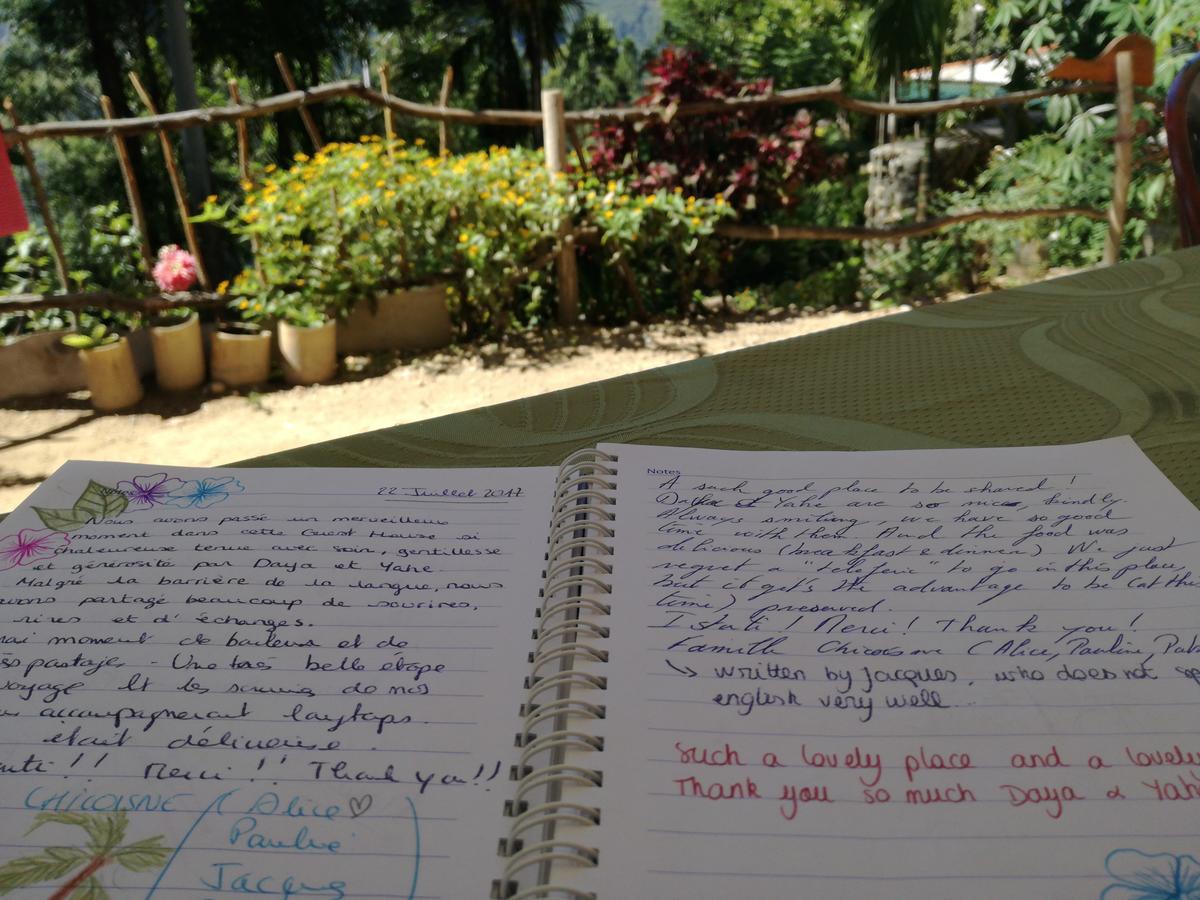 22 Juillet 2017
Nous avons passé un merveilleux
moment dans cette Guest House si
chaleureuse tenue avec soin, gentillesse
et générosité par Daya et Yahe.
Malgré la barrière de la langue, nous
avons partagé beaucoup de sourires,
rires et d'échanges.
moment de et de
partage - Une très belle étape
voyage Et les de nos
accompagneront longtemps.
était délicieuse.
!! Merci!! Thank you!!
CHICOISNE (Alice♡
Pauline
Jacques
Notes
A such good place to be shared!
Yahe are so nice, kindly.
Always smiling, we have so good
time with them. And the food was
delicious (breakfast & dinner) We just
regret a "teleferic" to go in this place,
but it get's the advantage to be (at this
time) preserved.
Istuti! Merci! Thank you!
Famille Chicoisne (Alice, Pauline,
↳ written by Jacques, who does not
english very well...
Such a lovely place and a lovely
Thank you so much Daya &